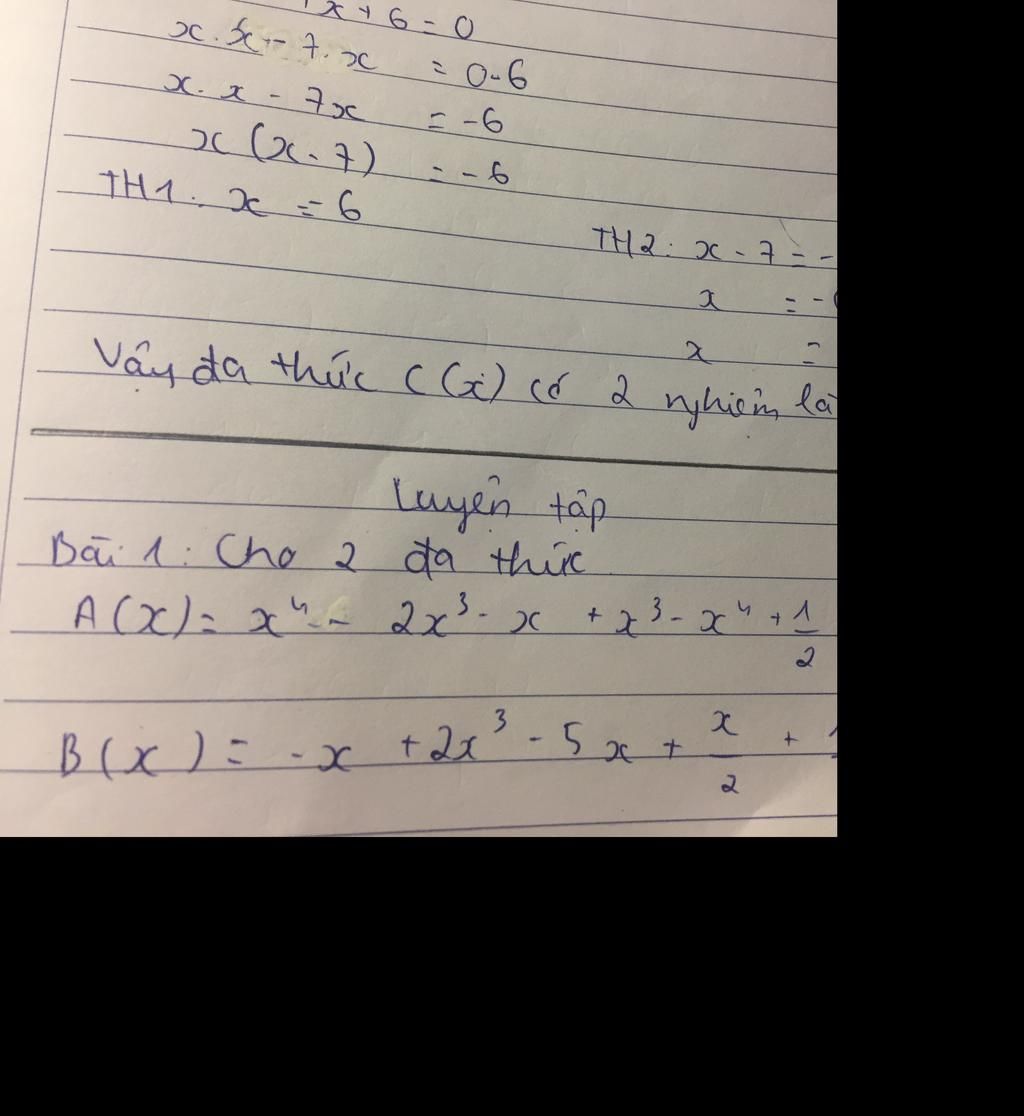 x + 6 = 0
x . x - 7 . x = 0 - 6
x . x - 7x = -6
x (x - 7) = -6
TH1 : x = 6
TH2 : x - 7 = -
x = -
x =
Vậy đa thức C(x) có 2 nghiệm là
Luyện tập
Bài 1 : Cho 2 đa thức
A(x) = x⁴ - 2x³ - x + x³ - x⁴ + 1/2
B(x) = -x + 2x³ - 5x + x/2 +